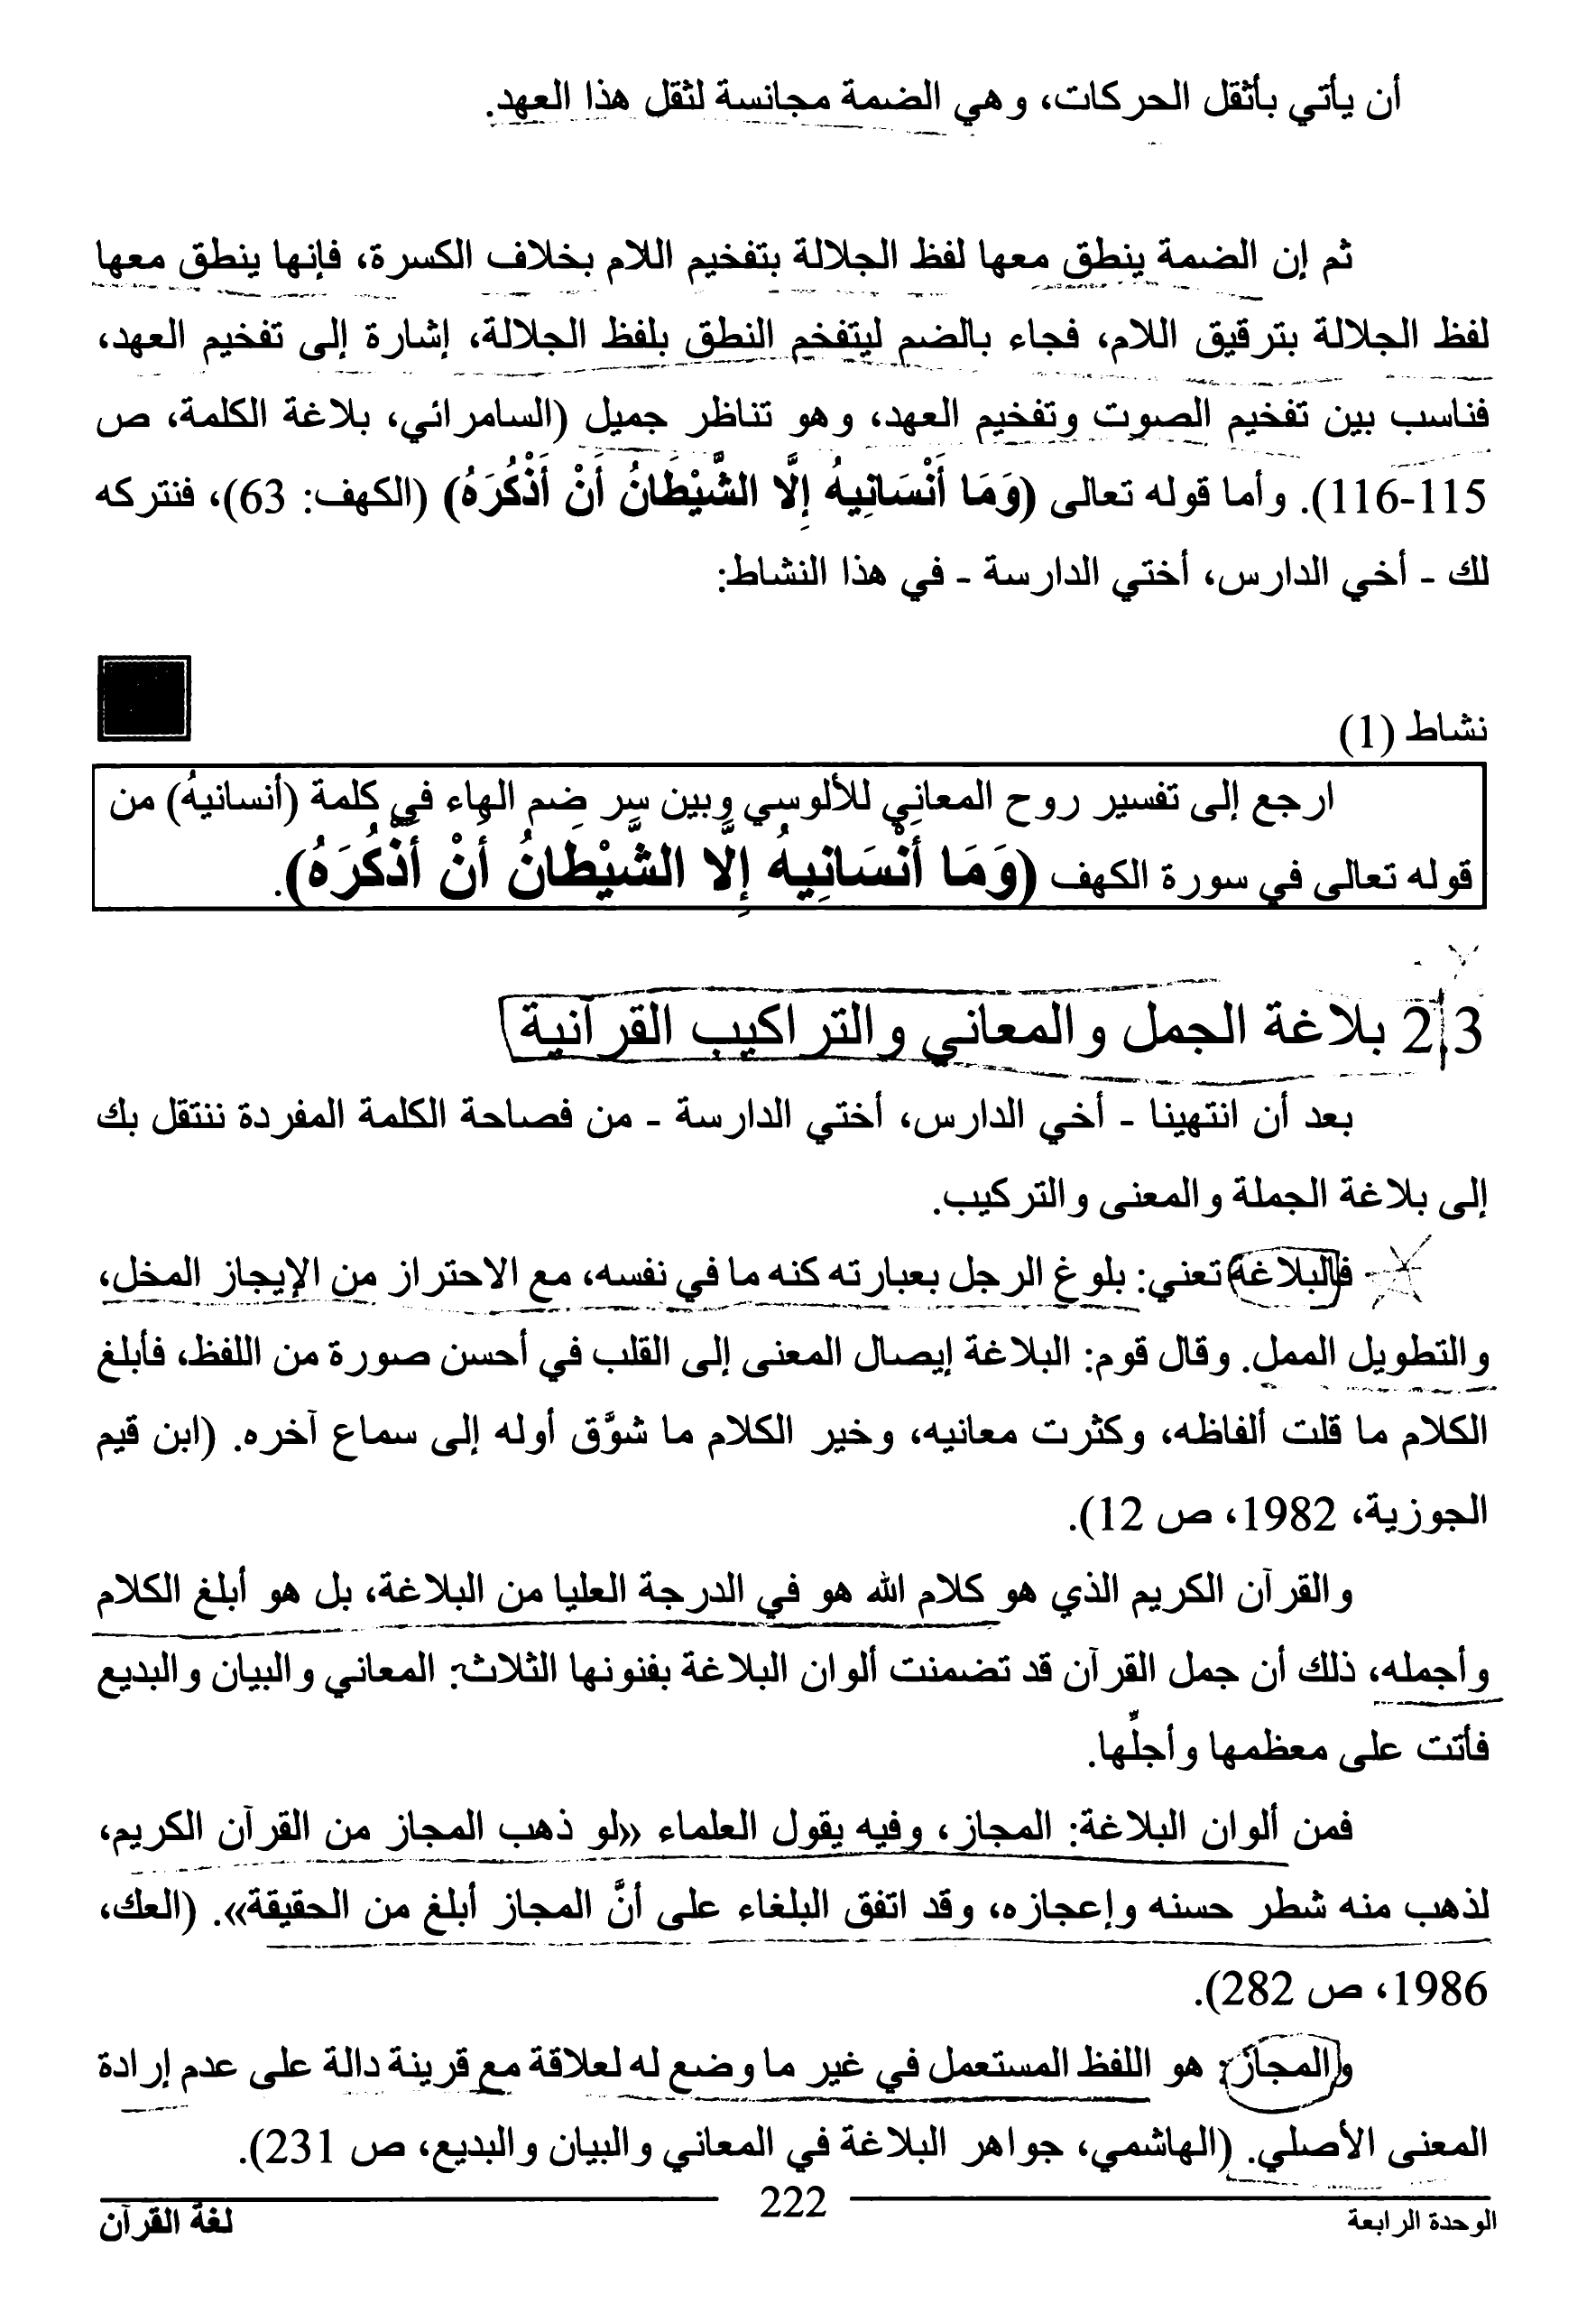 أن يأتي بأثقل الحركات، وهي الضمة مجانسة لثقل هذا العهد.
ثم إن الضمة ينطق معها لفظ الجلالة بتفخيم اللام بخلاف الكسرة، فإنها ينطق معها
لفظ الجلالة بترقيق اللام، فجاء بالضم ليتفخم النطق بلفظ الجلالة، إشارة إلى تفخيم العهد،
فناسب بين تفخيم الصوت وتفخيم العهد، وهو تناظر جميل (السامرائي، بلاغة الكلمة، ص
115-116). وأما قوله تعالى (وَمَا أَنْسَانِيهُ إِلَّا الشَّيْطَانُ أَنْ أَذْكُرَهُ) (الكهف: 63)، فنتركه
لك - أخي الدارس، أختي الدارسة - في هذا النشاط:
نشاط (1)
ارجع إلى تفسير روح المعاني للألوسي وبين سر ضم الهاء في كلمة (أنسانيهُ) من
قوله تعالى في سورة الكهف (وَمَا أَنْسَانِيهُ إِلَّا الشَّيْطَانُ أَنْ أَذْكُرَهُ).
2.3 بلاغة الجمل والمعاني والتراكيب القرآنية
بعد أن انتهينا - أخي الدارس، أختي الدارسة - من فصاحة الكلمة المفردة ننتقل بك
إلى بلاغة الجملة والمعنى والتركيب.
فالبلاغة تعني: بلوغ الرجل بعبارته كنه ما في نفسه، مع الاحتراز من الإيجاز المخل،
والتطويل الممل. وقال قوم: البلاغة إيصال المعنى إلى القلب في أحسن صورة من اللفظ، فأبلغ
الكلام ما قلت ألفاظه، وكثرت معانيه، وخير الكلام ما شوَّق أوله إلى سماع آخره. (ابن قيم
الجوزية، 1982، ص 12).
والقرآن الكريم الذي هو كلام الله هو في الدرجة العليا من البلاغة، بل هو أبلغ الكلام
وأجمله، ذلك أن جمل القرآن قد تضمنت ألوان البلاغة بفنونها الثلاث: المعاني والبيان والبديع
فأتت على معظمها وأجلِّها.
فمن ألوان البلاغة: المجاز، وفيه يقول العلماء «لو ذهب المجاز من القرآن الكريم،
لذهب منه شطر حسنه وإعجازه، وقد اتفق البلغاء على أنَّ المجاز أبلغ من الحقيقة». (العك،
1986، ص 282).
والمجاز: هو اللفظ المستعمل في غير ما وضع له لعلاقة مع قرينة دالة على عدم إرادة
المعنى الأصلي. (الهاشمي، جواهر البلاغة في المعاني والبيان والبديع، ص 231).
الوحدة الرابعة 222 لغة القرآن